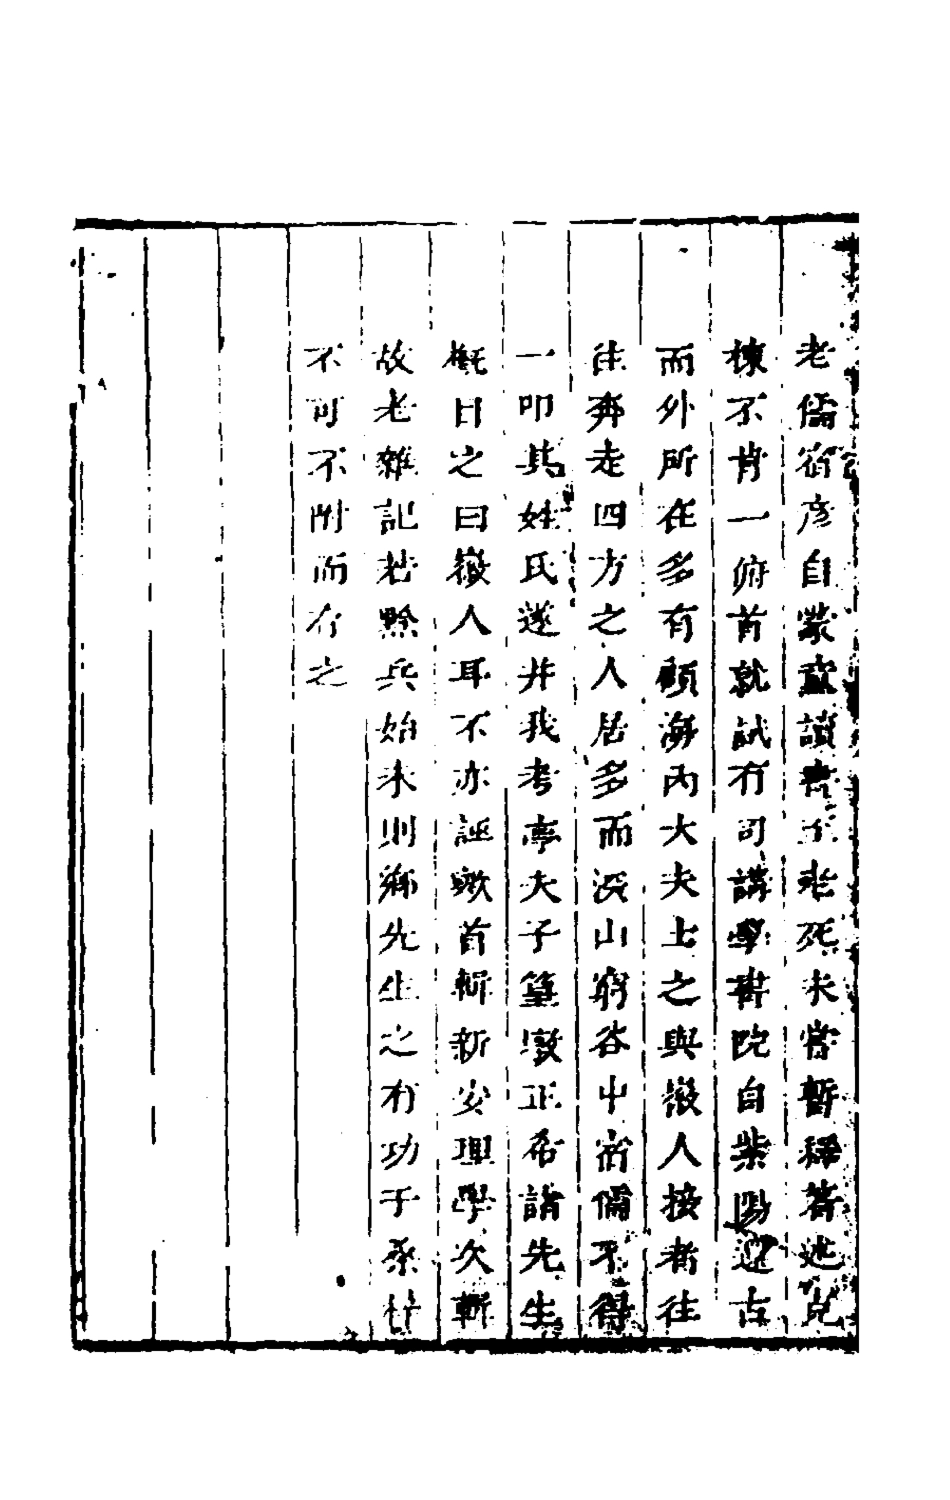 老儒宿彥自蒙童讀書至老死未嘗暫稀著述充
棟不肯一俯首就試有司講學書院自紫陽還古
而外所在多有顧海內大夫士之與徽人接者往
往奔走四方之人居多而深山窮谷中宿儒不得
一叩其姓氏遂并我考亭夫子篁墩正希諸先生
概目之曰徽人耳不亦誣歟首輯新安理學次輯
故老雜記若黟兵始末則鄉先生之有功于桑梓
不可不附而存之